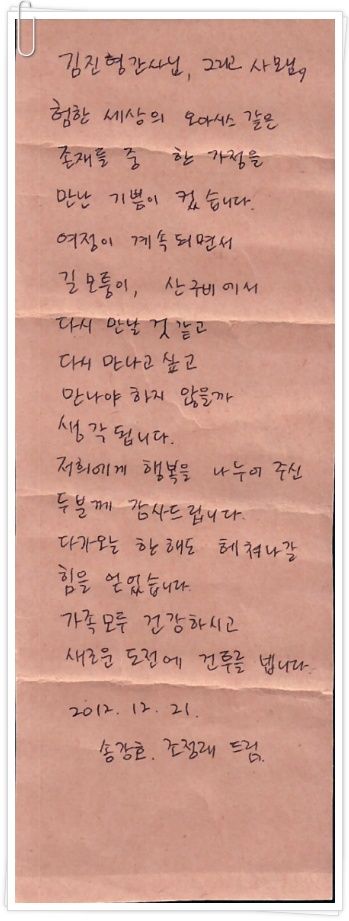 김진형간사님, 그리고 사모님,
험한 세상의 오아시스 같은
존재들 중 한 가정을
만난 기쁨이 컸습니다.
여정이 계속되면서
길모퉁이, 산구비에서
다시 만날 것 같고
다시 만나고 싶고
만나야 하지 않을까
생각됩니다.
저희에게 행복을 나누어 주신
두분께 감사드립니다.
다가오는 한해도 헤쳐나갈
힘을 얻었습니다.
가족모두 건강하시고
새로운 도전에 건투를 빕니다.
2012. 12. 21.
송강호. 조정래 드림.